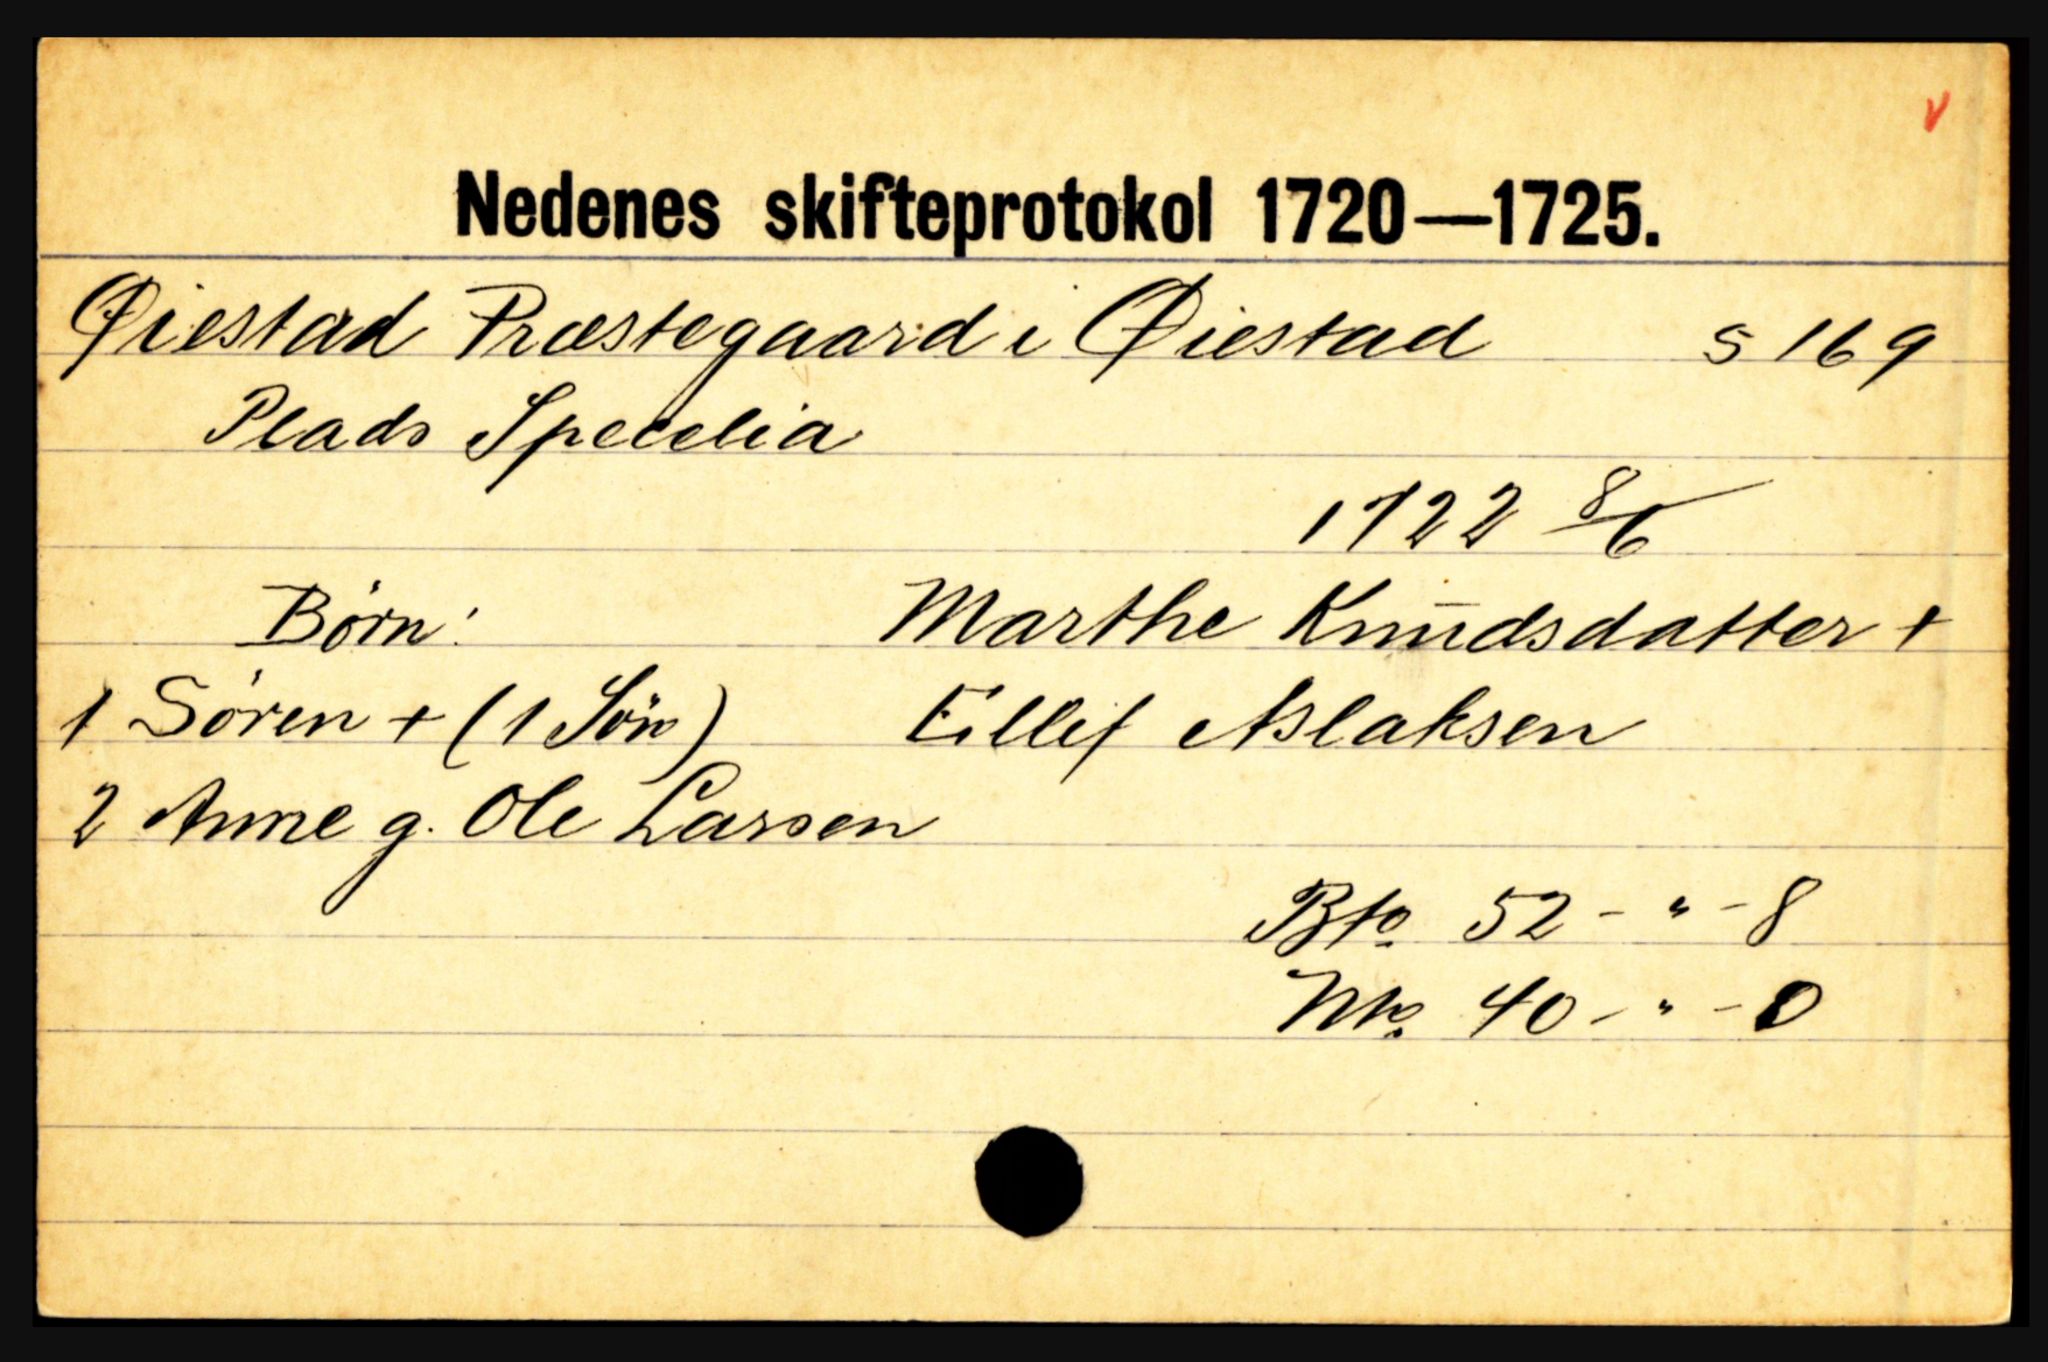 Nedenes skifteprotokol 1720—1725.
Øiestad Præstegaard i Øiestad S 169
Plads Specelia
1722 8/6
Børn: Marthe Knudsdatter +
1 Sören + (1 Sön) Eillif Aslaksen
2 Anne g. Ole Larsen
Bto. 52 - " - 8
Nto. 40 - " - 0